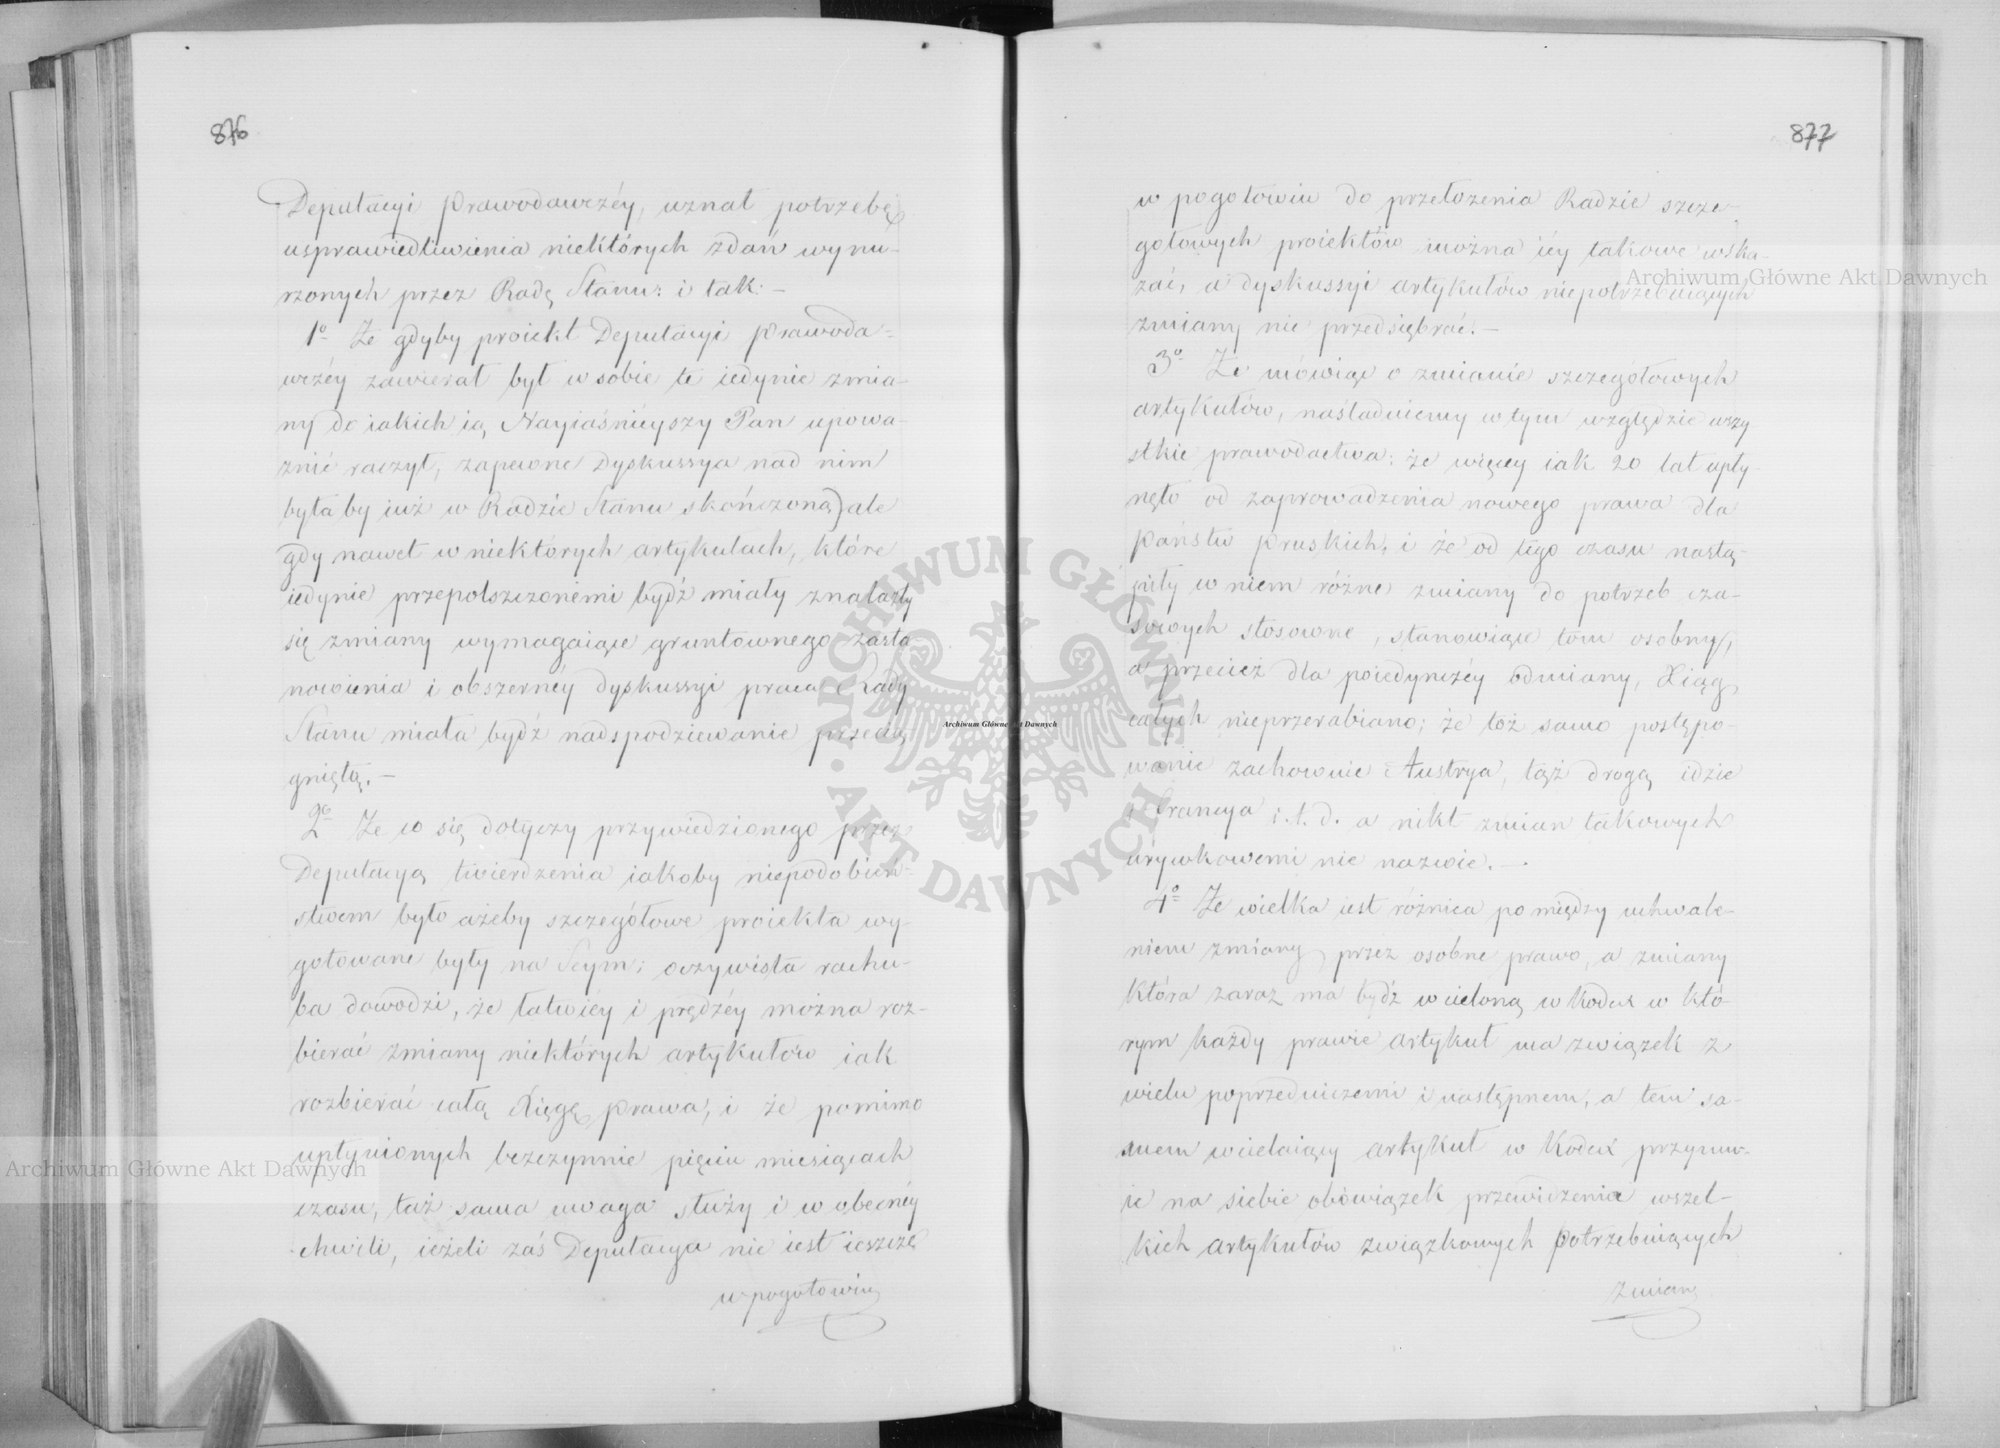 876
Deputacyi Prawodawczéy, uznał potrzebę
usprawiedliwienia niektórych zdań wynu-
rzonych przez Radę Stanu: i tak: –
1º Że gdyby proiekt Deputacyi Prawoda-
wczéy zawierał był w sobie te iedynie zmia-
ny do iakich ią Nayiaśnieyszy Pan upowa-
żnić raczył, zapewne Dyskussya nad nim
byłaby iuż w Radzie Stanu skończoną) ale
gdy nawet w niektórych artykułach, które
iedynie przepolszczonemi bydź miały znalazły
się zmiany wymagaiące gruntownego zasta-
nowienia i obszernéy dyskussyi praca Rady
Stanu miała bydź nadspodziewanie przecią-
gniętą. –
2º Że co się dotyczy przywiedzionego przez
Deputacyą twierdzenia iakoby niepodobień-
stwem było ażeby szczegółowe proiekta wy-
gotowane były na Seym; oczywista rachu-
ba dowodzi, że łatwiéy i prędzéy można roz-
bierać zmiany niektórych artykułów iak
rozbierać całą Xięgę prawa, i że pomimo
upłynionych bezczynnie pięciu miesiącach
czasu, taż sama uwaga służy i w obecnéy
chwili, ieżeli zaś Deputacya nie iest ieszcze
w pogotowiu
877
w pogotowiu do przełożenia Radzie szcze-
gółowych proiektów można iéy takowe wska-
zać, a dyskussyi artykułów niepotrzebuiących
zmiany nie przedsiębrać. –
3º Że mówiąc o zmianie szczegółowych
artykułów, naśladuiemy w tym względzie wszy
stkie prawodactwa: że więcéy iak 20 lat upły-
nęło od zaprowadzenia nowego prawa dla
Państw Pruskich, i że od tego czasu nastą-
piły w niem różne zmiany do potrzeb cza-
sowych stosowne, stanowiące tom osobny,
a przecież dla poiedyńczéy odmiany, Xiąg
całych nieprzerabiano; że toż samo postępo-
wanie zachowuie Austrya, tąż drogą idzie
i Francya i.t.d. a nikt zmian takowych
urywkowemi nie nazwie. –
4º Że wielka iest różnica pomiędzy uchwale-
niem zmiany przez osobne prawo, a zmiany
która zaraz ma bydź wcieloną w Kodex w któ-
rym każdy prawie artykuł ma związek z
wielu poprzedniczemi i następnem, a tem sa-
mem wcielaiący artykuł w Kodex przyimu-
ie na siebie obowiązek przewidzenia wszel-
kich artykułów związkowych potrzebuiących
zmiany
Archiwum Główne Akt Dawnych
Archiwum Główne Akt Dawnych
Archiwum Główne Akt Dawnych
ARCHIWUM GŁÓWNE
AKT DAWNYCH